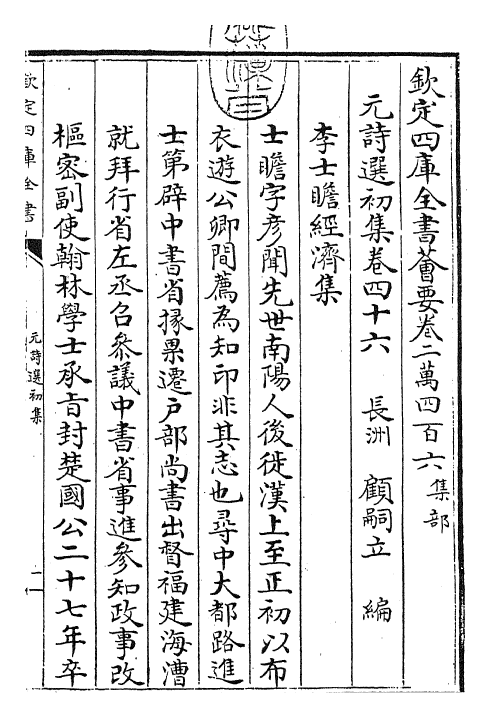 欽定四庫全書薈要卷二萬四百六集部
元詩選初集卷四十六　長洲　顧嗣立　編
李士瞻經濟集
士瞻字彦聞先世南陽人後徙漢上至正初以布
衣遊公卿間薦為知印非其志也尋中大都路進
士第辟中書省掾累遷户部尚書出督福建海漕
就拜行省左丞召叅議中書省事進參知政事改
樞密副使翰林學士承旨封楚國公二十七年卒
欽定四庫全書
元詩選初集